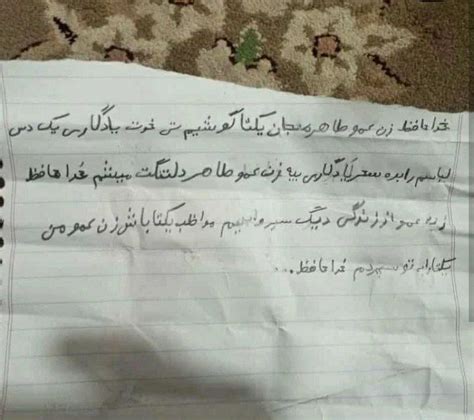 خداحافظ زن عمو طاهره جان یکتا گوشیم تی خرت یادگاری یک دس
لباسم را بده سحر یادگاری بیه زن عمو طاهر دلتنگت میشم خداحافظ
زن عمو از زندگی دیگ سیر واییم مواظب یکتا باش زن عمو من
یکتارا به تو سپردم خداحافظ...